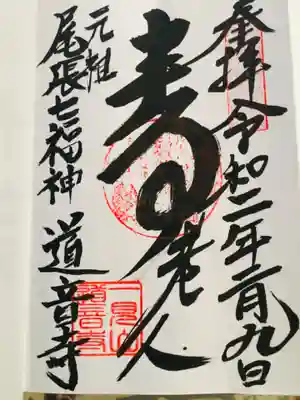 奉拝 令和二年一月九日
寿老人
元祖
尾張七福神 道音寺